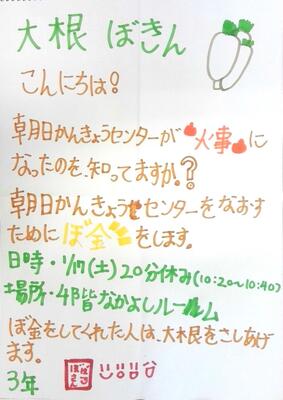 大根 ぼきん
こんにちは!
朝日かんきょうセンターが火事に
なったのを、知ってますか?
朝日かんきょうセンターをなおす
ためにぼ金をします。
日時・1/17(土)20分休み(10:20~10:40)
場所・4階なかよしルーム
ぼ金をしてくれた人は、大根をさしあげ
ます。
3年